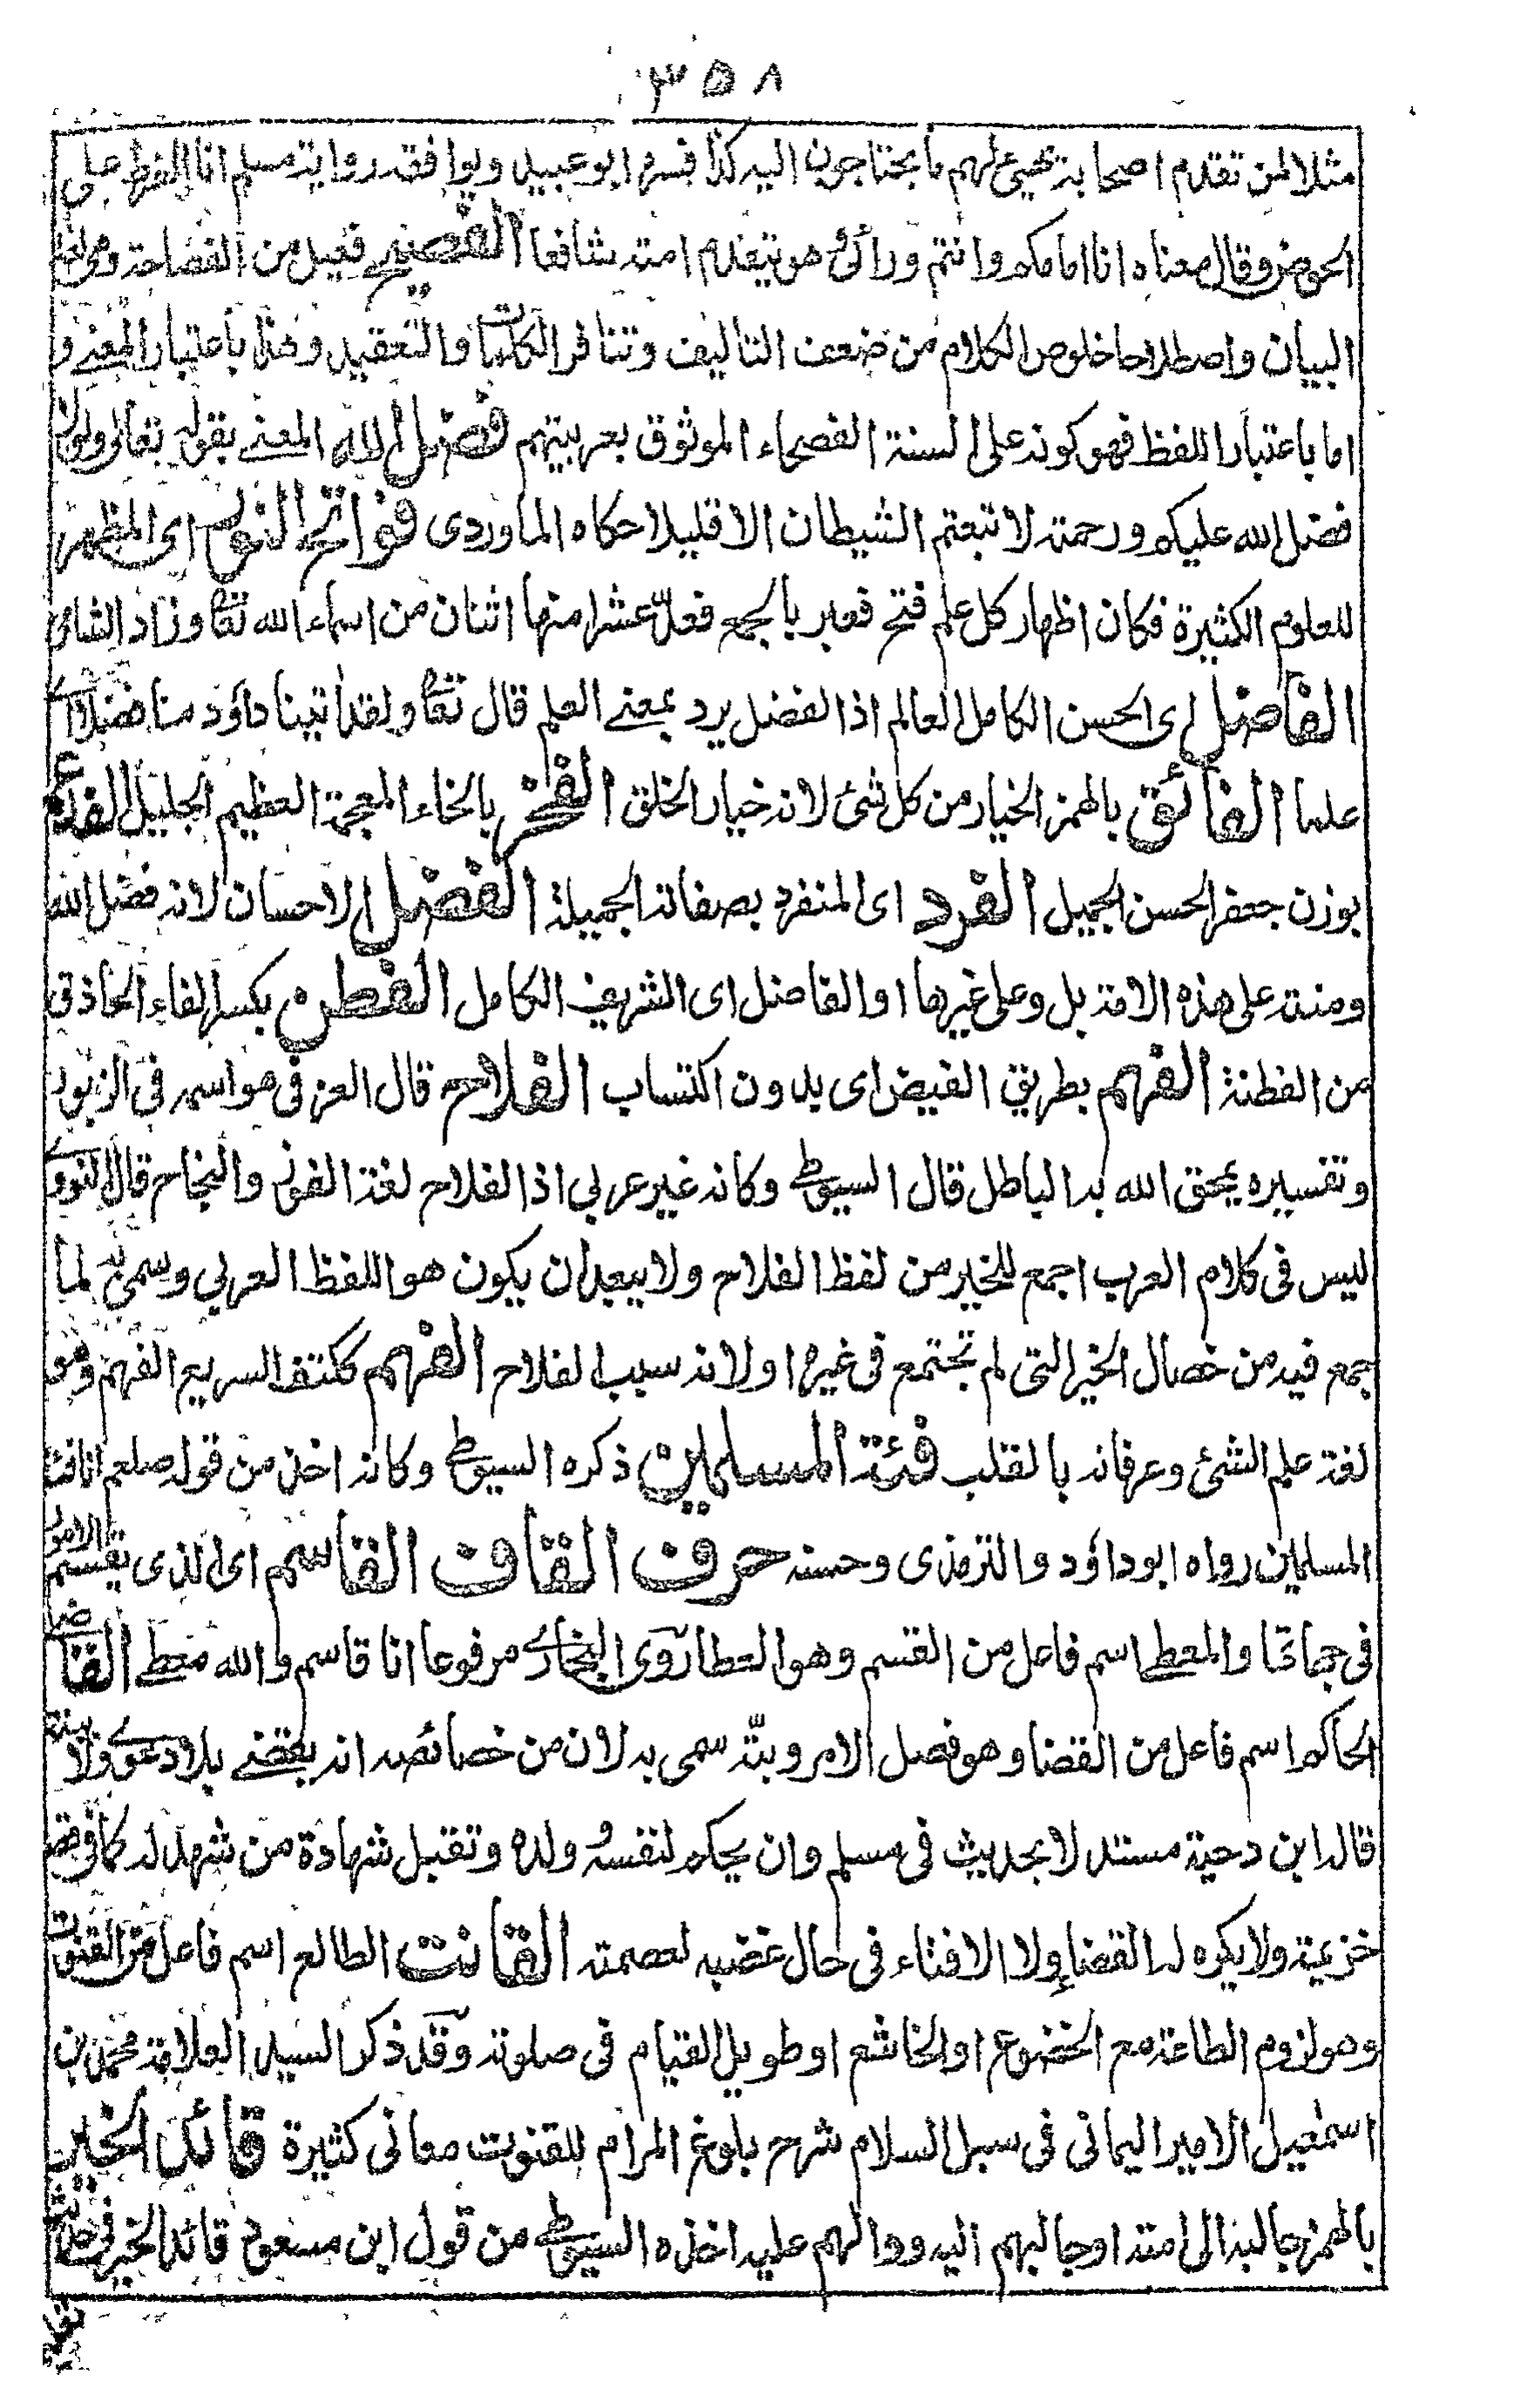 ٣٥٨
مثلا لمن تقدم اصحابه يهيئ لهم ما يحتاجون اليه كذا فسره ابو عبيد ويوافقه رواية مسلم انا الفرط على
الحوض وقال معناه انا امامكم وانتم ورائى هو يتقدم امته شافعا الفصيح فعيل من الفصاحة وهى لغة
البيان واصطلاحا خلوص الكلام من ضعف التاليف وتنافر الكلمات والتعقيد وهذا باعتبار المعنے و
اما باعتبار اللفظ فهو كونه على السنة الفصحاء الموثوق بعربيتهم فضل الله المعنے بقوله تعالى ولولا
فضل الله عليكم ورحمته لا تبعتم الشيطان الا قليلا حكاه الماوردى فواتح النور اى المظهر
للعلوم الكثيرة فكان اظهار كل علم فتح فعبر بالجمع فعلّ عشرا منها اثنان من اسماء الله تعا وزاد الشامى
الفاضل اى الحسن الكامل العالم اذ الفضل يرد بمعنے العلم قال تعا ولقد اتينا داؤد منا فضلا اے
علما الفائق بالهمز الخيار من كل شئ لانه خيار الخلق الفخر بالخاء المعجمة العظيم الجليل الفدغم
بوزن جعفر الحسن الجميل الفرد اى المنفرد بصفاته الجميلة الفضل الاحسان لانه فضل الله
ومنته على هذه الامة بل وعلى غيرها او الفاضل اى الشريف الكامل الفطن بكسر الفاء الحاذق
من الفطنة الفهم بطريق الفيض اى بدون اكتساب الفلاح قال العز فى هو اسمه فى الزبور
وتفسيره يمحق الله به الباطل قال السيوطے وكانه غير عربى اذ الفلاح لغة الفوز والنجاح قال النووے
ليس فى كلام العرب اجمع للخير من لفظ الفلاح ولا يبعد ان يكون هو اللفظ العربى وسمى به لما
جمع فيه من خصال الخير التى لم تجتمع فى غيره او لانه سبب الفلاح الفهم ككتف السريع الفهم وهو
لغة علم الشئ وعرفانه بالقلب فئة المسلمين ذكره السيوطے وكانه اخذ من قوله صلعم انا فئة
المسلمين رواه ابو داؤد والترمذى وحسنه حرف القاف القاسم اى الذى يقسم الامور
فى جهاتها والمعطے اسم فاعل من القسم وهو العطا روى البخارے مرفوعا انا قاسم والله معطے القاضى
الحاكم اسم فاعل من القضا وهو فصل الامر وبتّه سمى به لان من خصائصه انه يقضے بلا دعوے ولا بينة
قاله ابن دحية مستدلا بحديث فى مسلم وان يحكم لنفسه و ولده وتقبل شهادة من شهد له كما فى قصة
خزيمة ولا يكره له القضا ولا الافتاء فى حال غضبه لعصمته القانت الطالع اسم فاعل من القنوت
وهو لزوم الطاعة مع الخضوع او الخاشع او طويل القيام فى صلوته وقد ذكر السيد العلامة محمد بن
اسمعيل الامير اليمانى فى سبل السلام شرح بلوغ المرام للقنوت معانى كثيرة قائد الخير
بالهمز جالبه الى امته او جالبهم اليه ودالهم عليه اخذه السيوطے من قول ابن مسعود قائد الخير فى